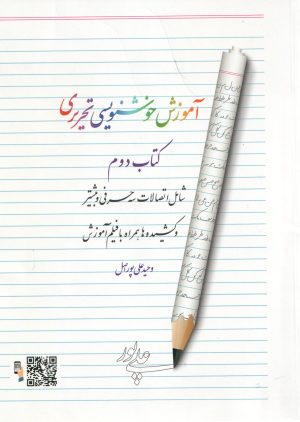 آموزش خوشنویسی تحریری
کتاب دوم
شامل اتصالات سه حرفی و بیشتر
و کشیده ها همراه با فیلم آموزش
وحید علی پور اصل